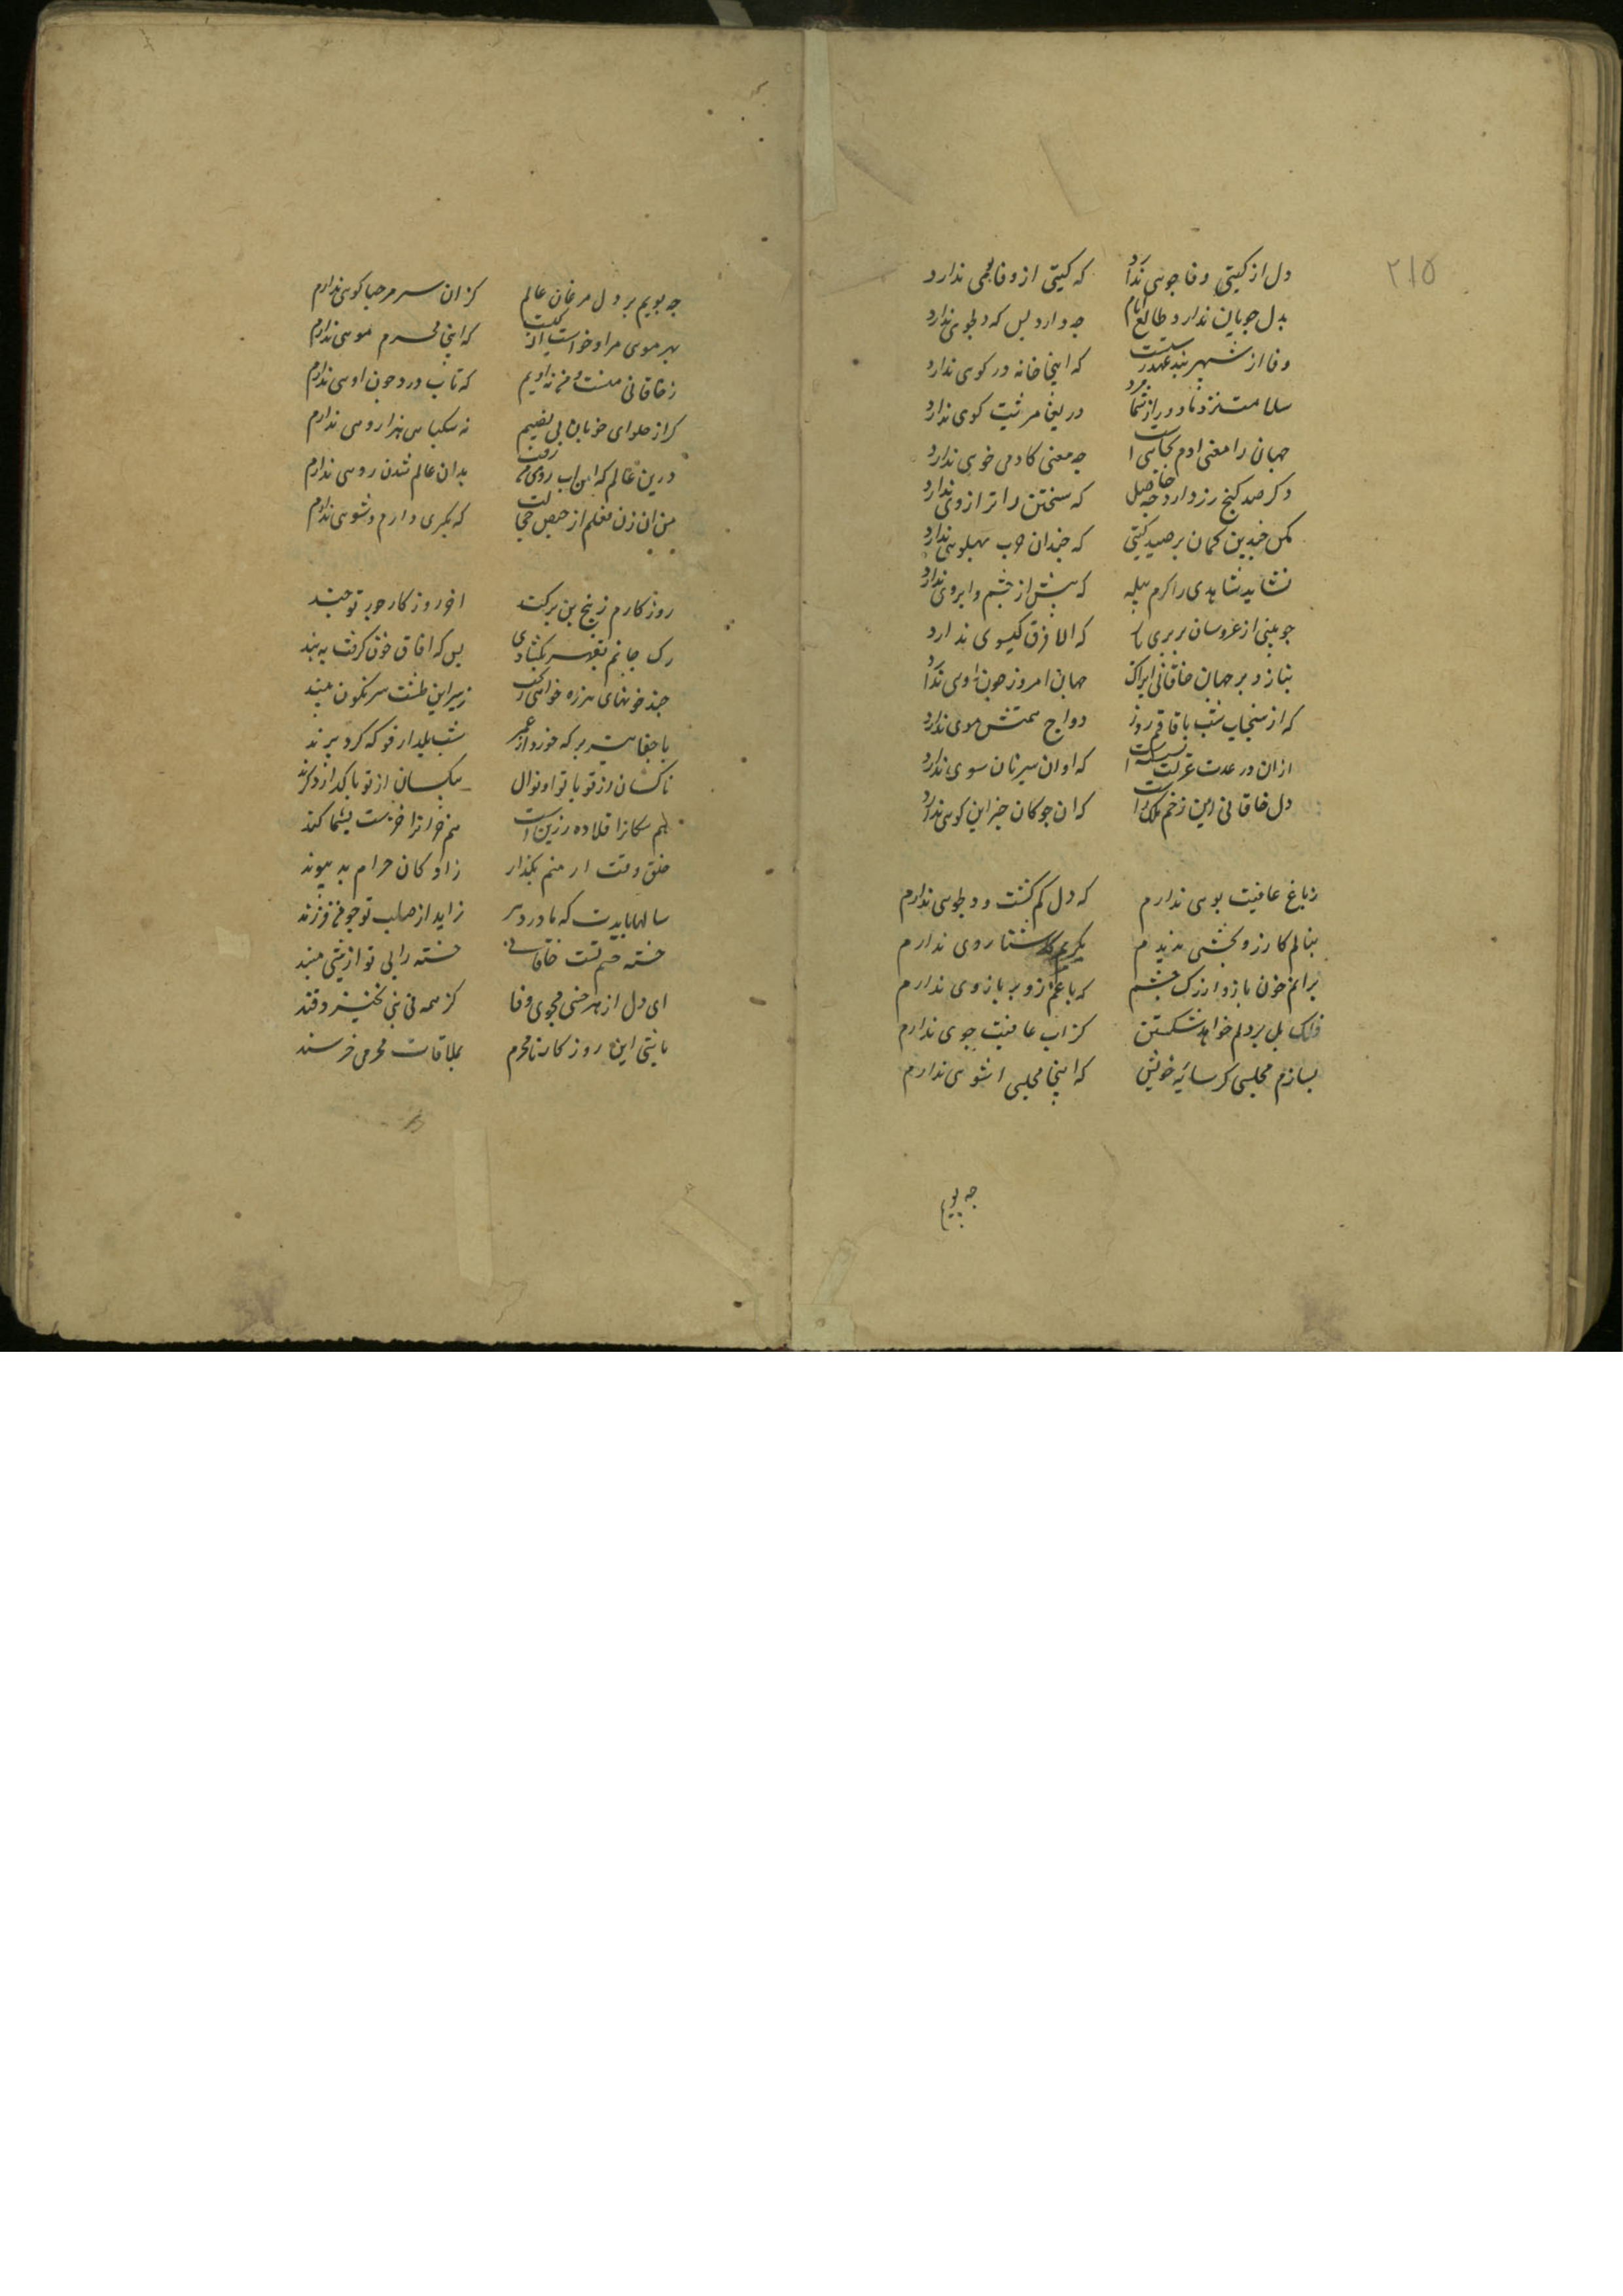 ۲۱۵
دل از کیتی وفا جوی ندارد که کیتی از وفا بویی ندارد
بدل جویان ندارد طالع ایام جه دارد بس که دلجوی ندارد
وفا از شهر بند عهد رستست که اینجا خانه در کوی ندارد
سلامت نزد ما دور از شما مرد دریغا مرثیت کوی ندارد
جهان را معنی ادم بجایست جه معنی کادمی خوی ندارد
دکر صد کنج زر دارد جه حاصل که سختن را ترازوی ندارد
مکن جندین کمان بر صید کیتی که جندان جرب بهلوی ندارد
نشاید شاهدی را کرم بیله که بیش از جشم و ابروی ندارد
جو بینی از عروسان بربری که الا فرق کیسوی ندارد
بنازد بر جهان خاقانی ایراک جهان امروز جون اوی ندارد
که از سنجاب شب تا قاقم روز دواج همتش موی ندارد
ازان در عدت عزلت نشستست که او ان سیرتان سوی ندارد
دل خاقانی این زخم فلک راست که ان جوکان جز این کوی ندارد
ز باغ عافیت بوی ندارم که دل کم کشت و دلجوی ندارم
بنالم کارزو بخشی ندیدم بکریم کاشنا روی ندارم
برانم خون بازو از رک جشم که با غم زور بازوی ندارم
فلک بل بر دلم خواهد شکستن کز اب عافیت جوی ندارم
بسازم مجلسی کر سایه خویش که اینجا مجلس اشوی ندارم
جه بویم
جه بویم بر دل مرغان عالم کز ان سر مرحبا کوی ندارم
بهر موی مرا وخواست از کیست که اینجا محرم موی ندارم
ز خاقانی منست و من نه اویم که تاب درد جون اوی ندارم
کر از حلوای خوبان بی نصیبم نه سکبای هزار وی ندارم
درین عالم که اب روی من رفت بدان عالم شدن روی ندارم
من ان زن فعلم از حیض خجالت که بکری دارم و شوی ندارم
روزکارم ز بیخ بن برکند اخر روزکار جور تو جند
رک جانم بقهر بکشادی بس که افاق خون کرفت به بند
جند خونهای هرزه خواهی ریخت زیر این طشت سرنکون مبند
با جفایت بر که خورد از عمر شب یلدا رفو که کرد پرند
ناکسان از تو با نوا و نوال بیکسان از تو با کداز و کزند
هم سکانرا قلاده زرین است هم خرانرا خزست بشماکند
خلق وقت ار منم بکذار زادکان حرام به پیوند
سالها بایدت که مادر دهر زاید از صلب تو جو من فرزند
خسته جشم تست خاقانی خسته را بی نوازشی مبند
ای دل از هر خسی مجوی وفا کز همه نی بنی نخیزد قند
با بتی این روزکار نامحرم بملاقات محرمی خرسند